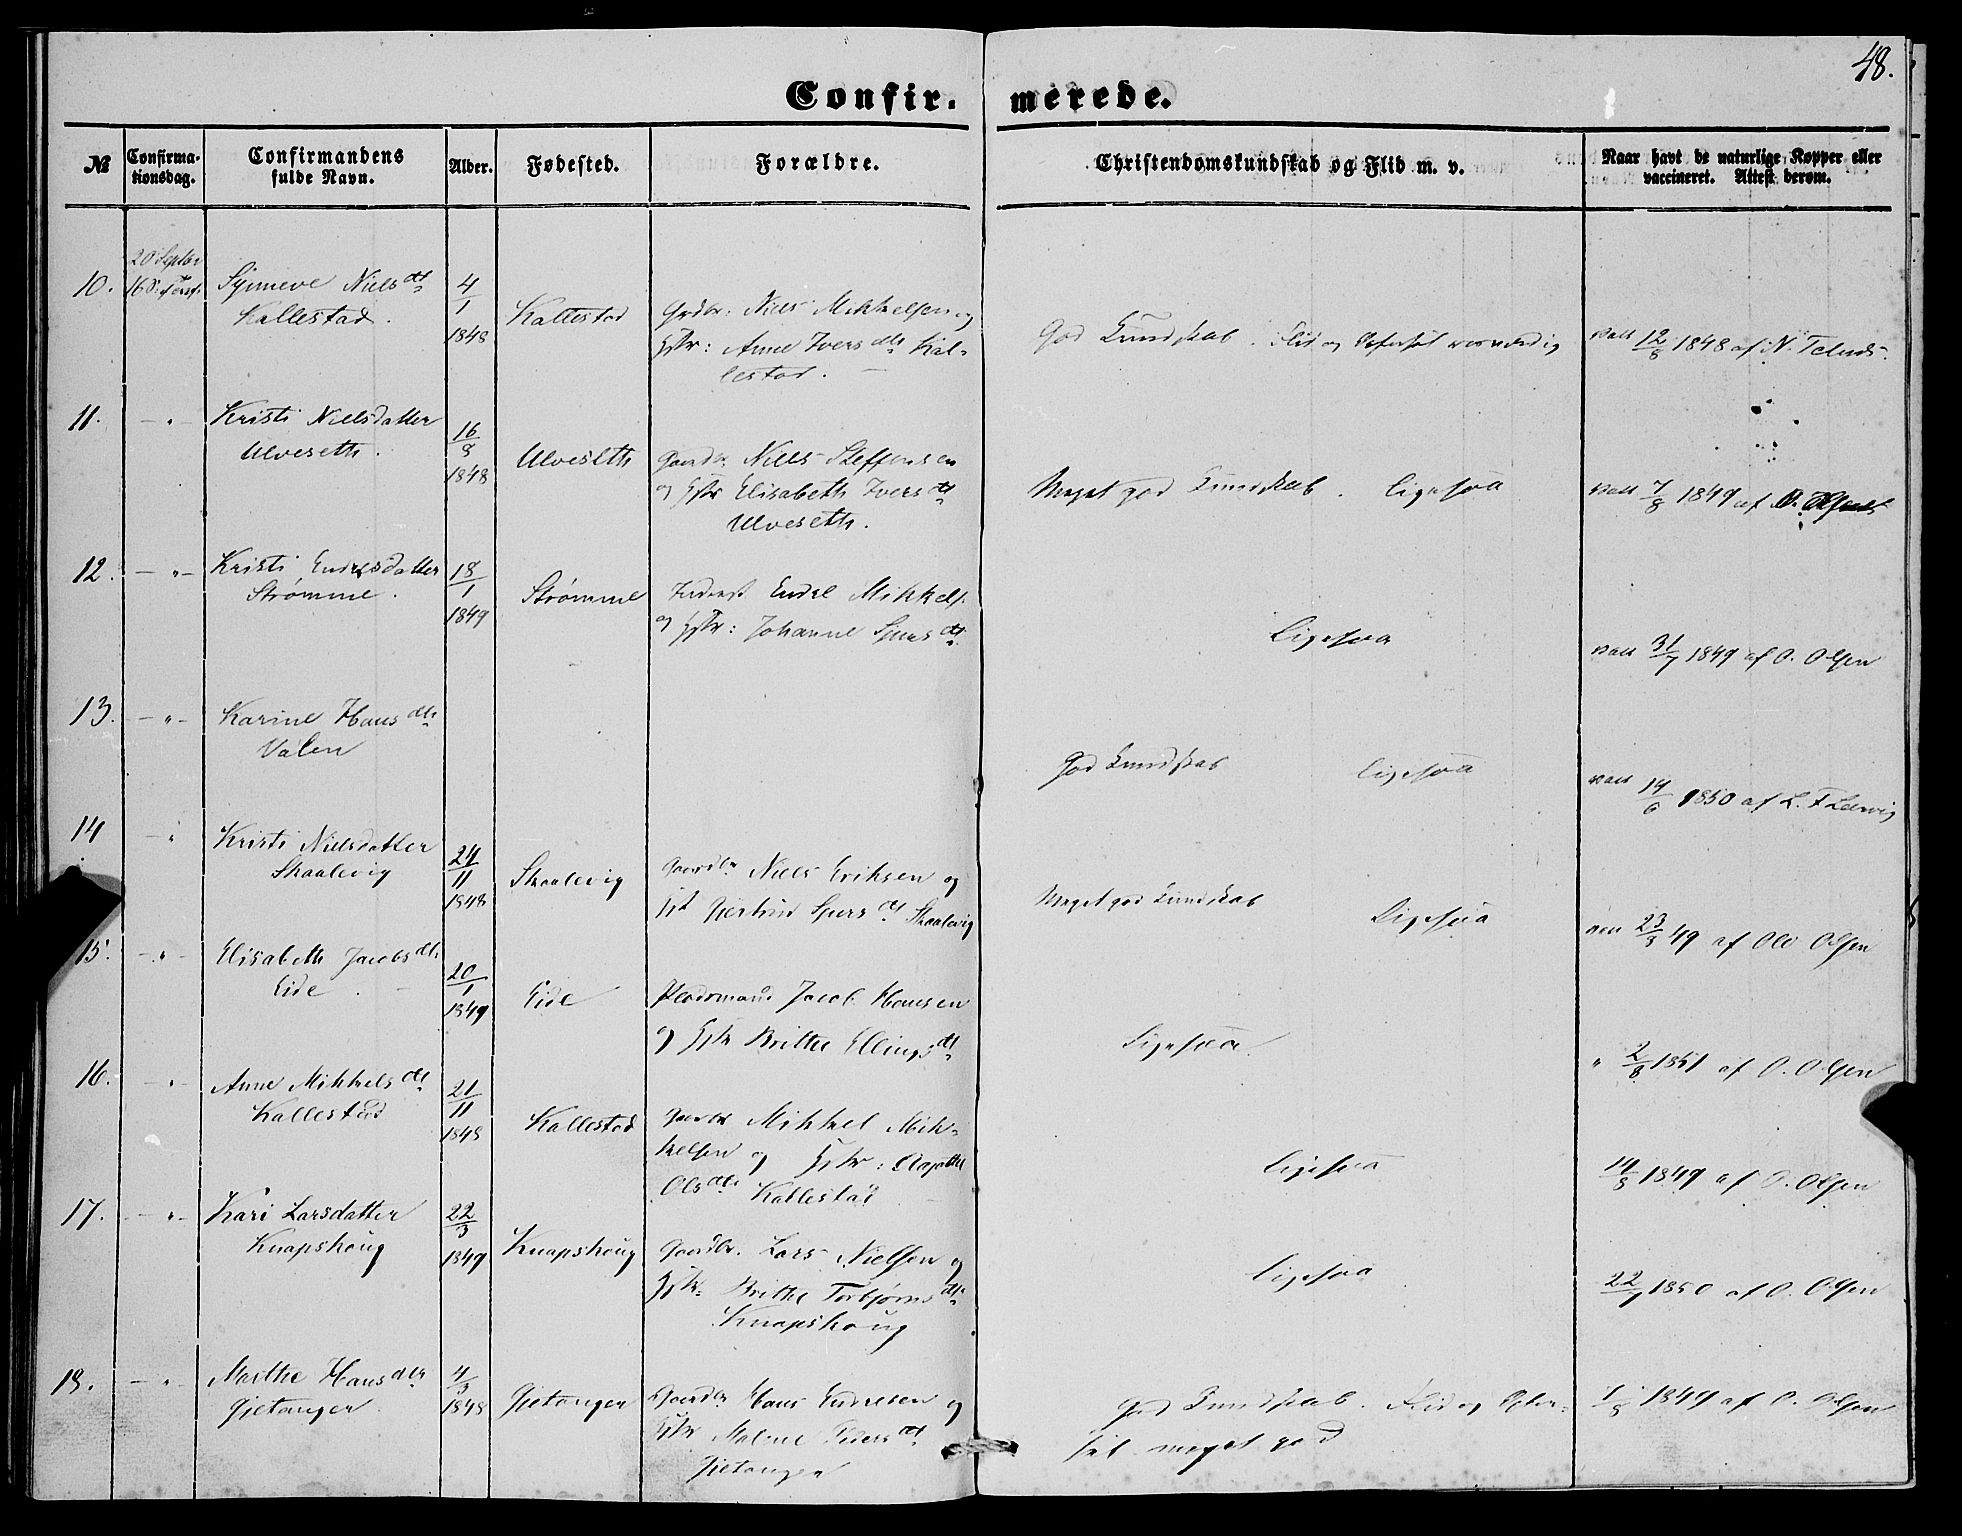 48.
Confir- merede.
№ Confirma- tionsdag. Confirmandens fulde Navn. Alder. Fødested. Forældre. Christendomskundskab og Flid m. v. Naar havt de naturlige Kopper eller vaccineret. Attest derom.
10. 20 Septbr
Synneve Nielsdt
Kallestad.
4/1 1848
Kallestad
Grdbr: Niels Mikkelsen og
Gstr: Anne Iversdt Kal-
lestad.
God Kundskab. Flid og
vacc 12/8 1848 af N.
11. - " - Kristi Nielsdatter
Ulveseth.
16/8 1848
Ulveseth
Gaardbr. Niels Steffensen
og Gstr Elisabeth Iversdt
Ulveseth.
Meget god Kundskab. Ligesaa
vacc 7/8 1849 af
12. - " - Kristi Endresdatter
Strømme.
18/1 1849
Strømme
Inderst Endre Mikkels.
og Gstr: Johanne Sjursdt.
Ligesaa
vacc 31/7 1849 af O. Olsen
13. - " - Karine Hansdtr
Valen
God Kundskab ligesaa
vacc 14/6 1850 af L.
14 " Kristi Nielsdatter
Skaalevig
24/11 1848
Skaalevig
Gaardbr Niels Eriksen og
Gst Gjertrud Sjursdt Skaalevig
Meget god Kundskab Ligesaa
23/8 49 af Ole Olsen
15. - " - Elisabeth Jacobsdtr
Eide.
20/1 1849
Eide
Pladsmand Jacob Hansen
og Gstr Brithe Ellingsdt
Ligesaa.
" 2/8 1851 af O. Olsen
16. - " - Anne Mikkelsdt
Kallestad
21/11 1848
Kallestad
Gaardbr Mikkel Mik-
kelsen og Gstr:
Olsdtr Kallestad
Ligesaa
14/8 1849 af O. Olsen
17. - " - Kari Larsdatter
Knapshoug
22/3 1849
Knapshoug
Gaardbr. Lars Nielsen og
Gstr. Brithe Torbjørnsdtr
Knapshoug
Ligesaa
22/7 1850 af O. Olsen
18. - " - Marthe Hansdtr
Gjetanger.
4/3 1848
Gjetanger
Gaardbr Hans Endresen og
Gstr Malene
Gjetanger
God Kundskab. Flid og Opfør-
sel meget god
7/8 1849 af O. Olsen